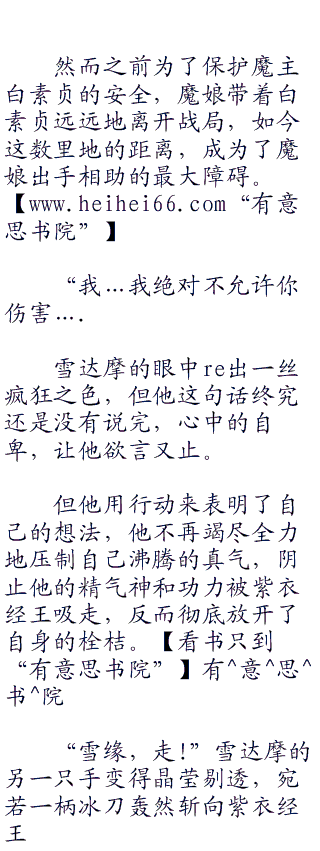 然而之前为了保护魔主
白素贞的安全，魔娘带着白
素贞远远地离开战局，如今
这数里地的距离，成为了魔
娘出手相助的最大障碍。
【www.heihei66.com“有意
思书院”】
“我…我绝对不允许你
伤害….
雪达摩的眼中re出一丝
疯狂之色，但他这句话终究
还是没有说完，心中的自
卑，让他欲言又止。
但他用行动来表明了自
己的想法，他不再竭尽全力
地压制自己沸腾的真气，阴
止他的精气神和功力被紫衣
经王吸走，反而彻底放开了
自身的栓桔。【看书只到
“有意思书院”】有^意^思^
书^院
“雪缘，走!”雪达摩的
另一只手变得晶莹剔透，宛
若一柄冰刀轰然斩向紫衣经
王